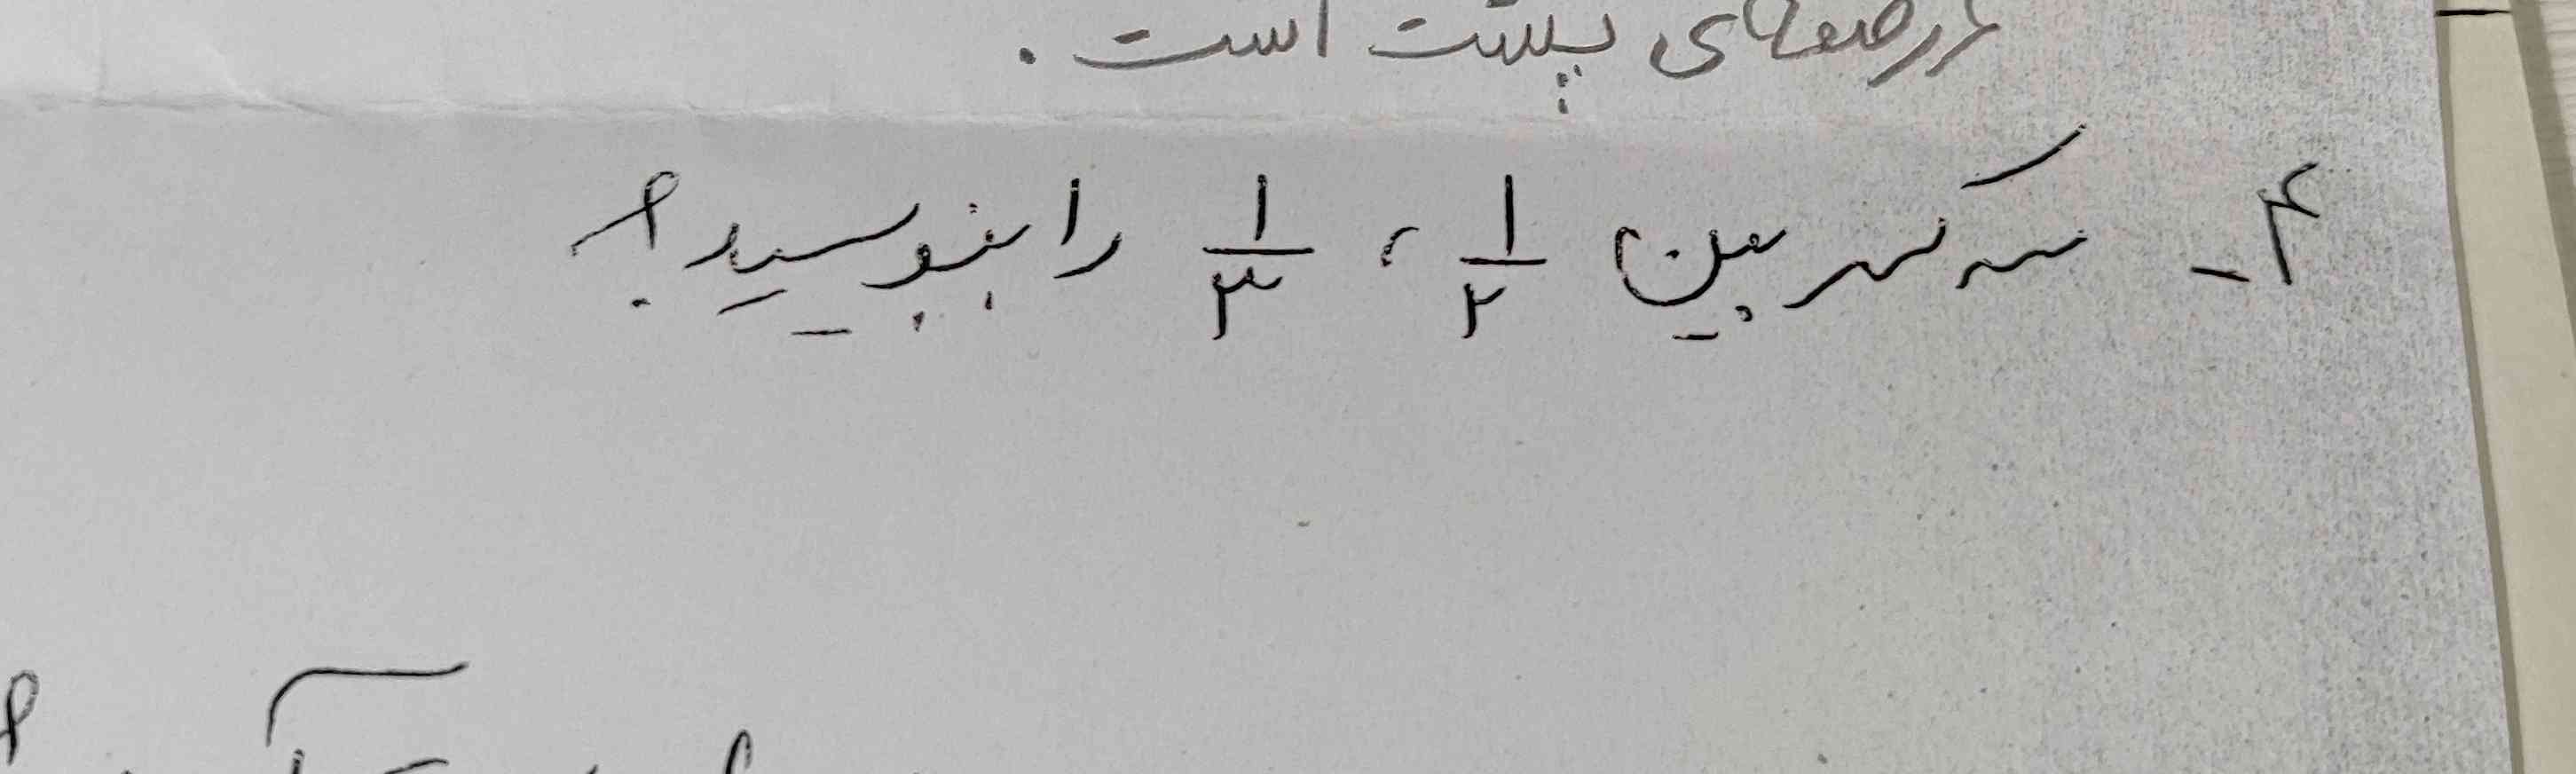 در صفحه‌ی پشت است.
۴- سه کسر بین ۱/۲ ، ۱/۳ را بنویسید؟
؟